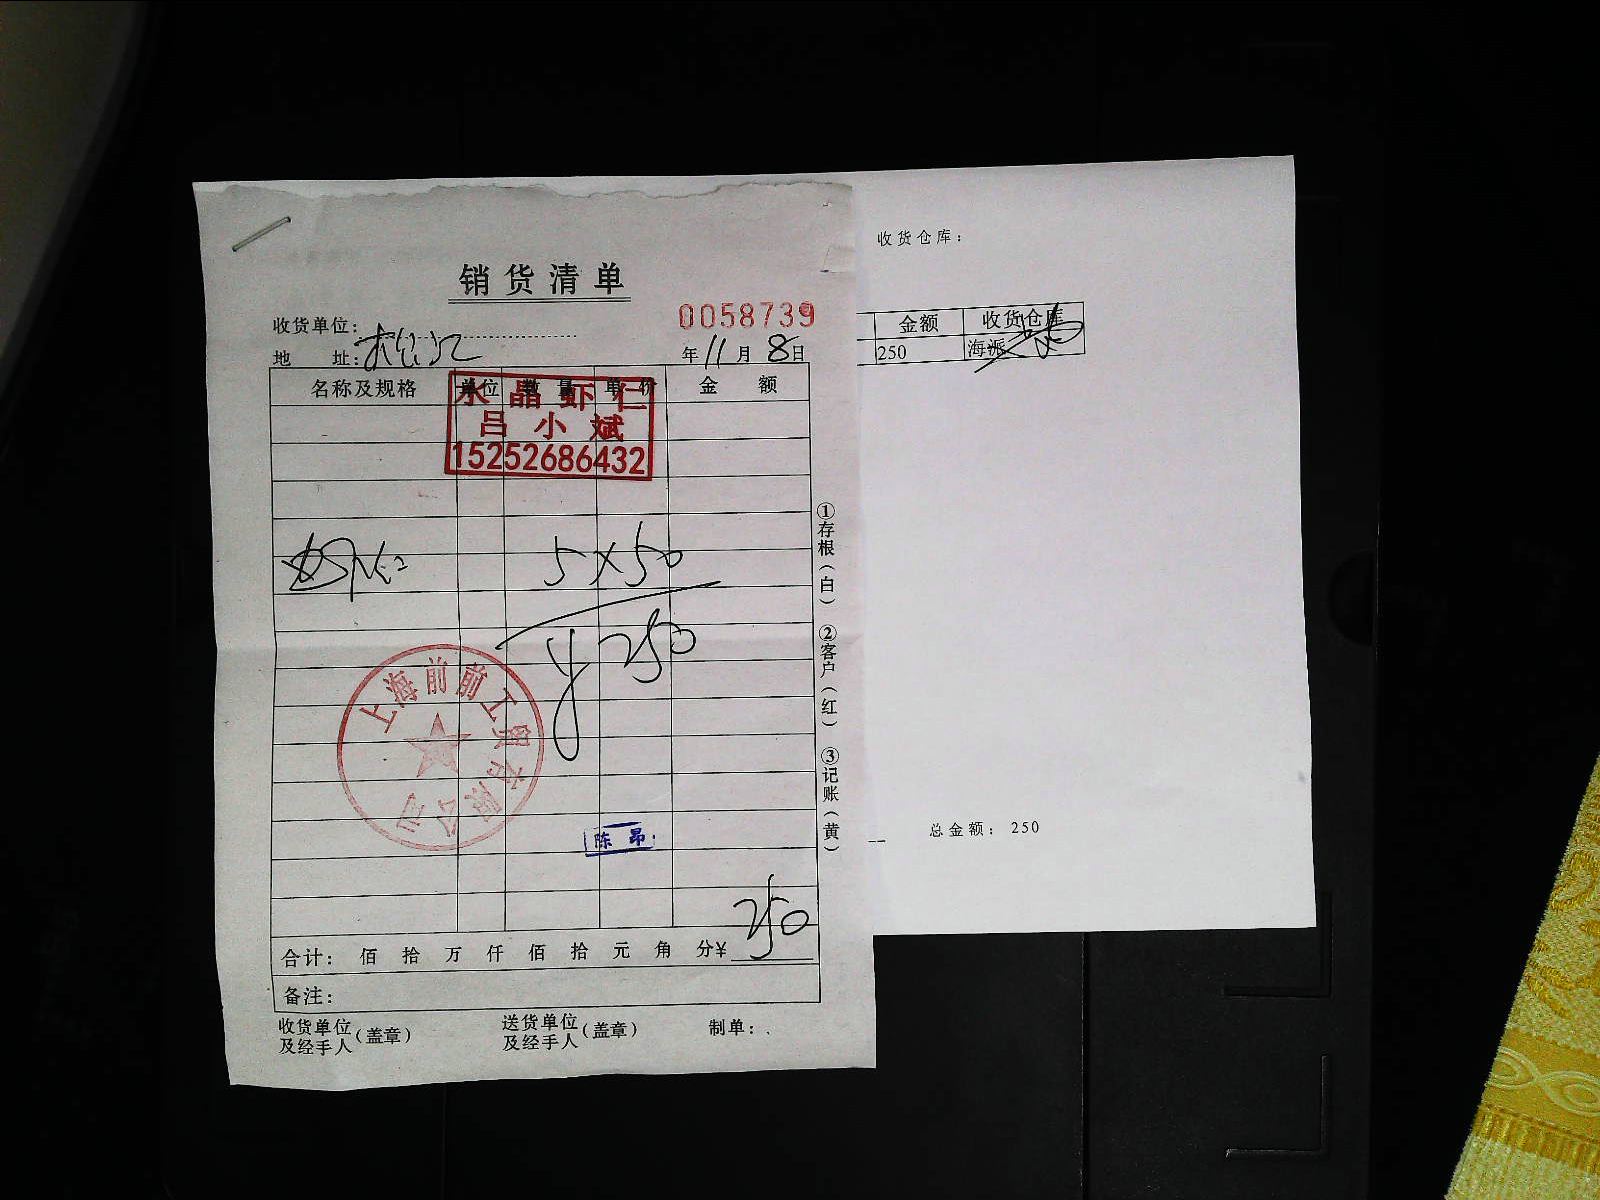 销货清单
0058739
收货单位:
地 址:
年 11 月 8 日
名称及规格 单位 数量 单价 金额
水晶虾仁
吕小斌
15252686432
5×50
¥250
上海前前工贸有限公司
陈昂
250
合计: 佰 拾 万 仟 佰 拾 元 角 分¥
备注:
收货单位及经手人(盖章)
送货单位及经手人(盖章)
制单:
①存根(白) ②客户(红) ③记账(黄)
收货仓库:
金额 收货仓库
250 海派
总金额: 250